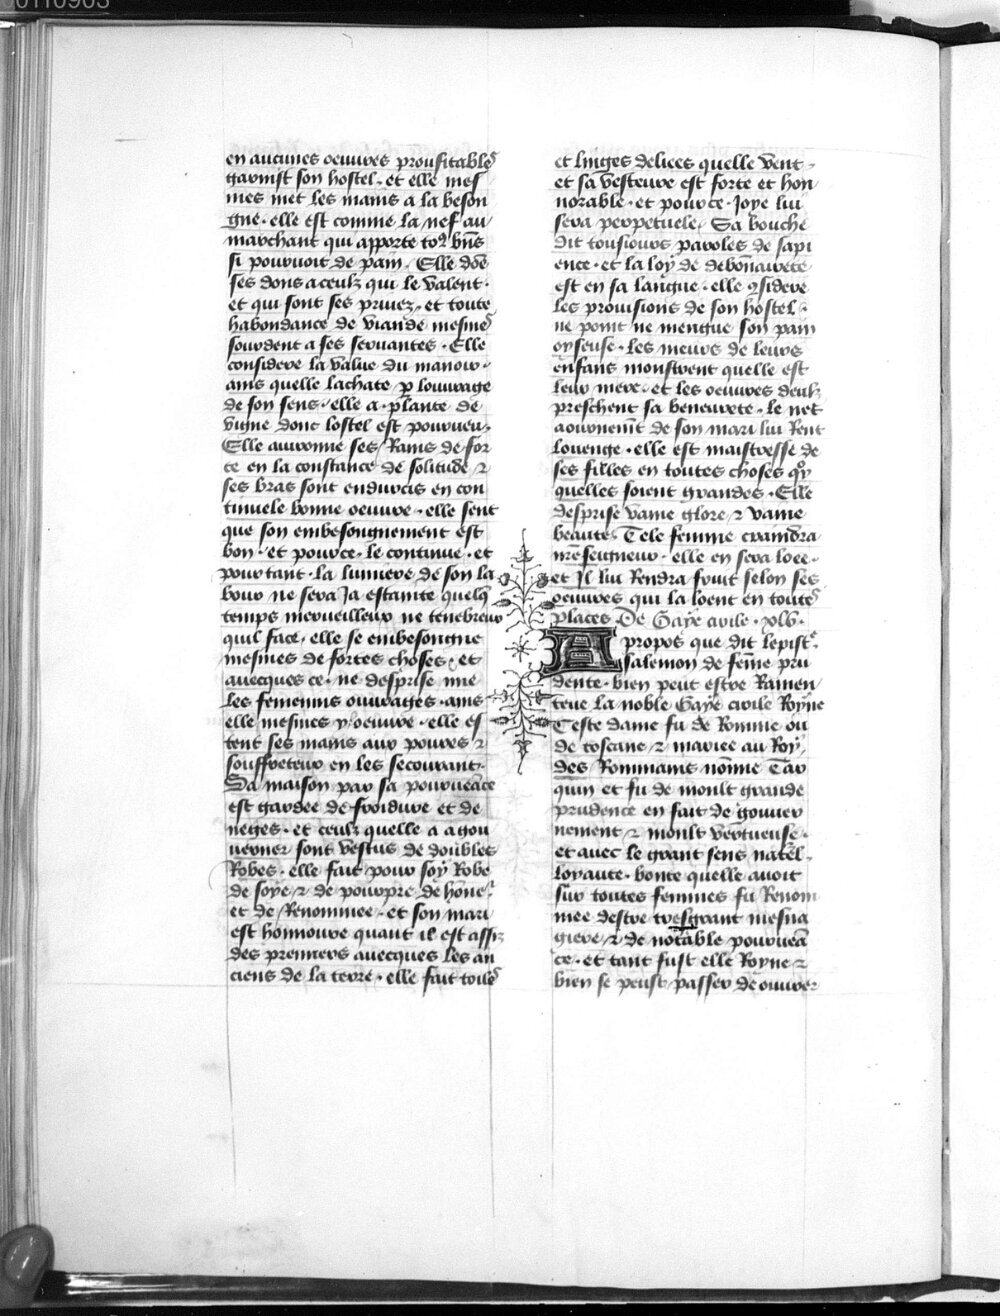 00110903
en aucunes oeuures proufitables
garnist son hostel · et elle mes
mes met les mains a la beson
gne · elle est comme la nef au
marchant qui apporte to9 bñs
si pouruoit de pain · Elle dõe
ses dons a ceulz qui le valent ·
et qui sont ses priuez · et toute
habondance de viande mesmes
sourdent a ses seruantes · Elle
considere la value du manoir ·
ains quelle lachate p louurage
de son sens · elle a plante de
vigne donc lostel est pourueu ·
Elle auironne ses Rains de for
ce en la constance de solitude ⁊
ses bras sont endurcis en con
tinuele bonne oeuure · elle sent
que son embesongnement est
bon · et pource le continue · et
pourtant la lumiere de son la
bour ne sera Ja estainte quelq9
temps merueilleux ne tenebreux
quil face · elle se embesongne
mesmes de fortes choses · et
auecques ce · ne desprise mie
les femenins ouurages · ains
elle mesmes y oeuure · elle es
tent ses mains aux poures ⁊
souffreteux en les secourant ·
Sa maison par sa pourueãce
est gardee de froidure et de
neges · et ceulz quelle a a gou
uerner sont vestus de doubles
Robes · elle fait pour soy Robe
de soye ⁊ de pourpre de hõne2
et de Renommee · et son mari
est honnoure quant il est assiz
des premiers auecques les an
ciens de la terre · elle fait toiles
et linges delices quelle vent ·
et sa vesteure est forte et hon
norable · et pource Joye lui
sera perpetuele · Sa bouche
dit tousiours paroles de sapi
ence · et la loy de debõnairete
est en sa langue · elle 9sidere
les prouisions de son hostel ·
ne point ne mengue son pain
oyseuse · les meurs de leurs
enfans monstrent quelle est
leur mere · et les oeuures deulz
preschent sa beneurete · le net
aournemẽt de son mari lui Rent
louenge · elle est maistresse de
ses filles en toutes choses q̃y
quelles soient grandes · Elle
desprise vaine glore ⁊ vaine
beaute · Tele femme craindra
nr̃e seigneur · elle en sera loee ·
et Jl lui Rendra fruit selon ses
oeuures qui la loent en toutes
places · De Gaye cirile · xlv ·
A propos que dit lepistr̃e
salemon de fẽme pru
dente · bien peut estre Ramen
teue la noble Gaye cirile Royne
Ceste dame fu de Romme ou
de toscane ⁊ mariee au Roy
des Rommains nõme Tar
quin et fu de moult grande
prudence en fait de gouuer
nement ⁊ moult vertueuse ·
et auec le grant sens natẽl ·
loyaute · bonte quelle auoit
sur toutes femmes fu Renom
mee destre tresgrant mesna
giere ⁊ de notable pourueã
ce · et tant fust elle Royne ⁊
bien se peust passer de ouurer